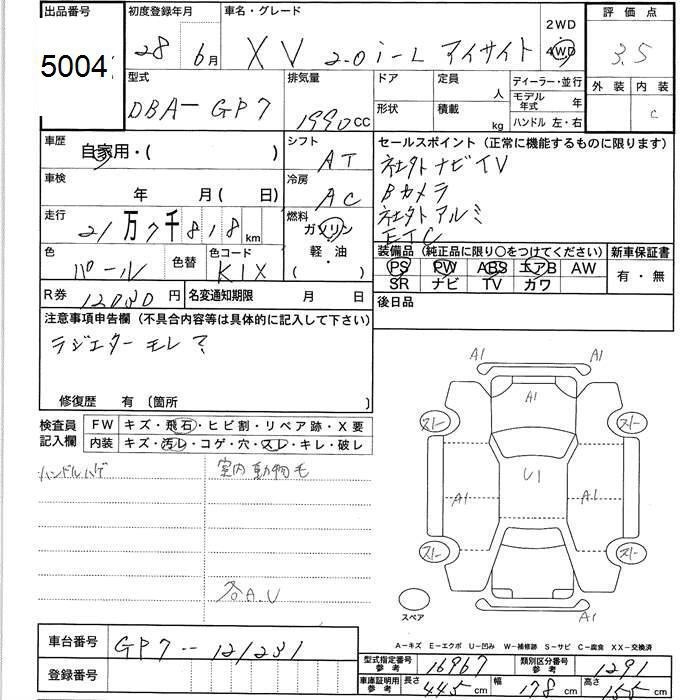 出品番号 初度登録年月 車名・グレード 2WD 評価点
5004 28 6月 XV 2.0i-L アイサイト 4WD 3.5
型式 排気量 ドア 定員 ディーラー・並行 外装 内装
DBA-GP7 1990CC 人 モデル年式 年 C
形状 積載 kg ハンドル 左・右
車歴 自家用・( ) シフト AT セールスポイント(正常に機能するものに限ります)
社外ナビTV
車検 年 月( 日) 冷房 AC Bカメラ
社外アルミ
走行 21万7千818km 燃料 ガソリン ETC
軽・油
( )
色 パール 色替 色コード K1X 装備品(純正品に限り○をつけてください) 新車保証書
PS PW ABS エアB AW 有・無
SR ナビ TV カワ
R券 12080円 名変通知期限 月 日 後日品
注意事項申告欄(不具合内容等は具体的に記入して下さい)
ラジエターモレ?
修復歴 有(箇所 )
検査員記入欄 FW キズ・飛石・ヒビ割・リペア跡・X要
内装 キズ・汚レ・コゲ・穴・スレ・キレ・破レ
ハンドルハゲ 室内動物毛
各A.U
A1 A1
A1
スレ スレ
U1
A1 A1
スレ スレ
スペア A1
A-キズ E-エクボ U-凹み W-補修跡 S-サビ C-腐食 XX-交換済
車台番号 GP7--121231
登録番号
型式指定番号 参考 16967 類別区分番号 参考 1291
車庫証明用 参考 長さ 445cm 幅 178cm 高さ 155cm